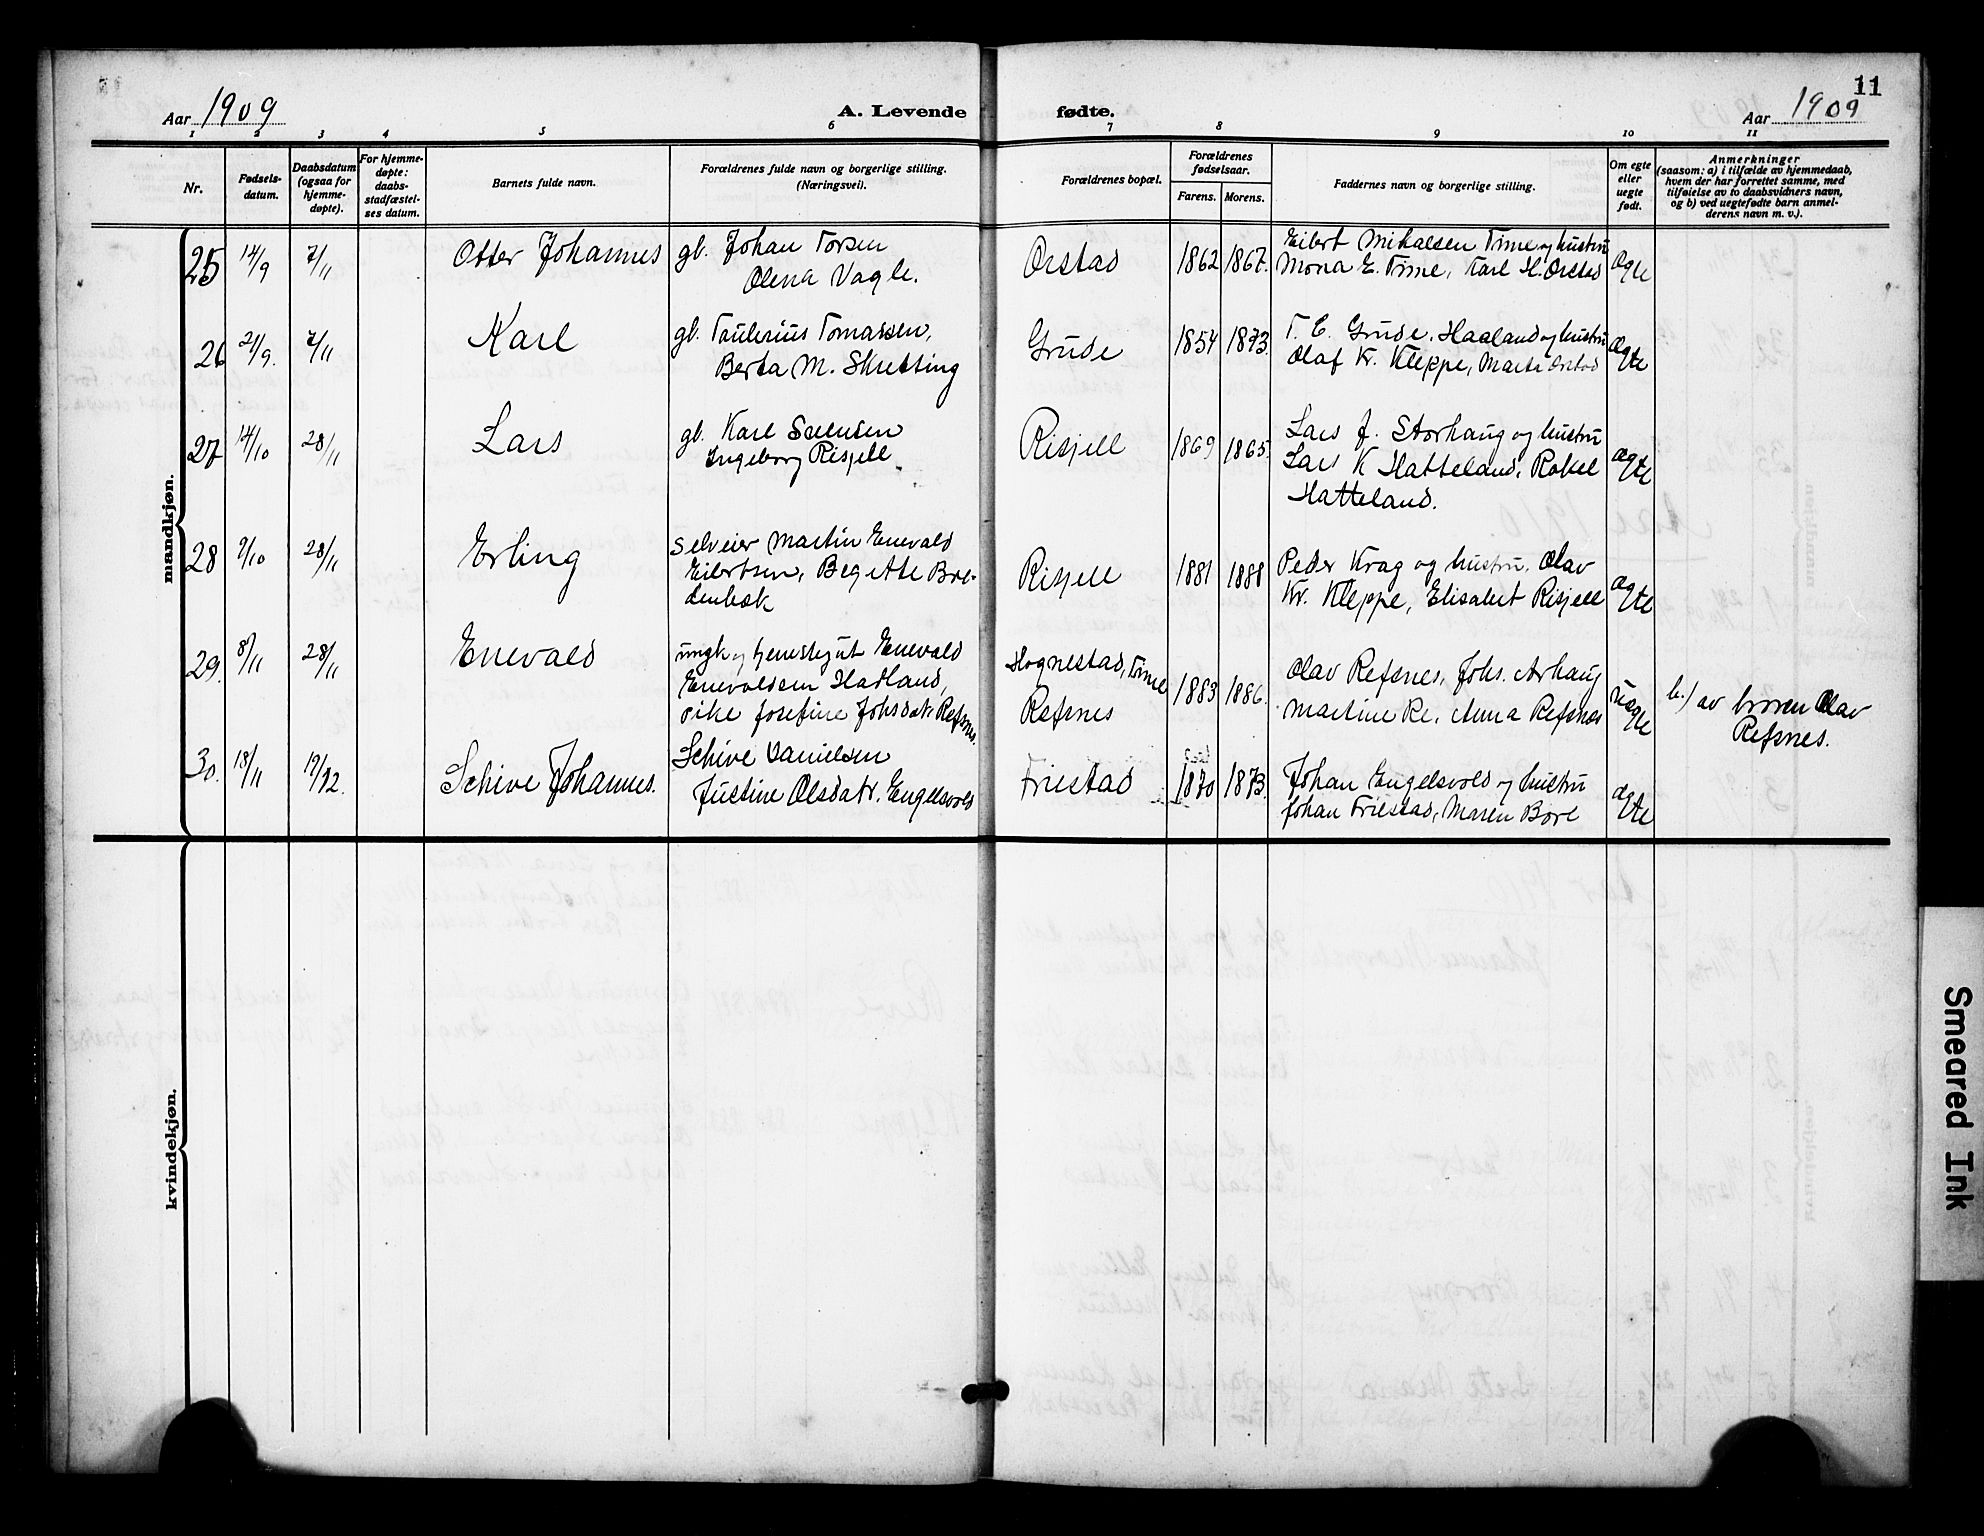 11
Aar 1909
A. Levende fødte.
Aar 1909
1 2 3 4 5 6 7 8 9 10 11
Nr.
Fødsels-
datum.
Daabsdatum
(ogsaa for
hjemme-
døpte).
For hjemme-
døpte:
daabs-
stadfæstel-
ses datum.
Barnets fulde navn.
Forældrenes fulde navn og borgerlige stilling.
(Næringsvei).
Forældrenes bopæl.
Forældrenes
fødselsaar.
Farens. Morens.
Faddernes navn og borgerlige stilling.
Om egte
eller
uegte
født.
Anmerkninger
(saasom: a) i tilfælde av hjemmedaab,
hvem der har forrettet samme, med
tilføielse av to daabsvidners navn,
og b) ved uegtefødte barn anmel-
derens navn m. v.).
mandkjøn.
25 14/9 7/11 Otter Johannes gb. Johan Torsen
Olena Vagle.
Orstad 1862 1867. Eilert Mikalsen Time og hustru
Mona E. Time, Karl H. Orstad
ægte
26 21/9. 7/11 Karl gb. Taulerius Tomassen,
Berta M. Skretting
Grude 1854 1873. T. E. Grude, Haaland og hustru
Olaf Kr. Kleppe, Marta Orstad
ægte
27 14/10 28/11 Lars gb. Karl Sørensen
Ingeborg Risjell
Risjell 1869 1865. Lars J. Storhaug og hustru
Lars K Hatteland, Rakel
Hatteland.
ægte
28 9/10 28/11 Erling selveier Martin Enevald
Eilertsen, Begette Bre-
denbæk
Risjell 1881 1888 Peder Krag og hustru. Olav
Kr. Kleppe, Elisabet Risjell
ægte
29. 8/11 28/11 Enevald ungk. og tjenestegut Enevald
Enevaldsen Hadland,
pike Josefine Johsdatr Refsnes.
Hognestad, Time
Refsnes
1883 1886. Olav Refsnes, Johs. Arhaug
Martine Re, Anna Refsnes
uægte
b.) av broren Olav
Refsnes.
30. 18/11 19/12. Schive Johannes. Schive Danielsen
Justine Olsdatr. Engelsvold
Friestad 1870 1873. Johan Engelsvold og hustru
Johan Friestad, Maren Bore
ægte
kvindekjøn.
Smeared Ink